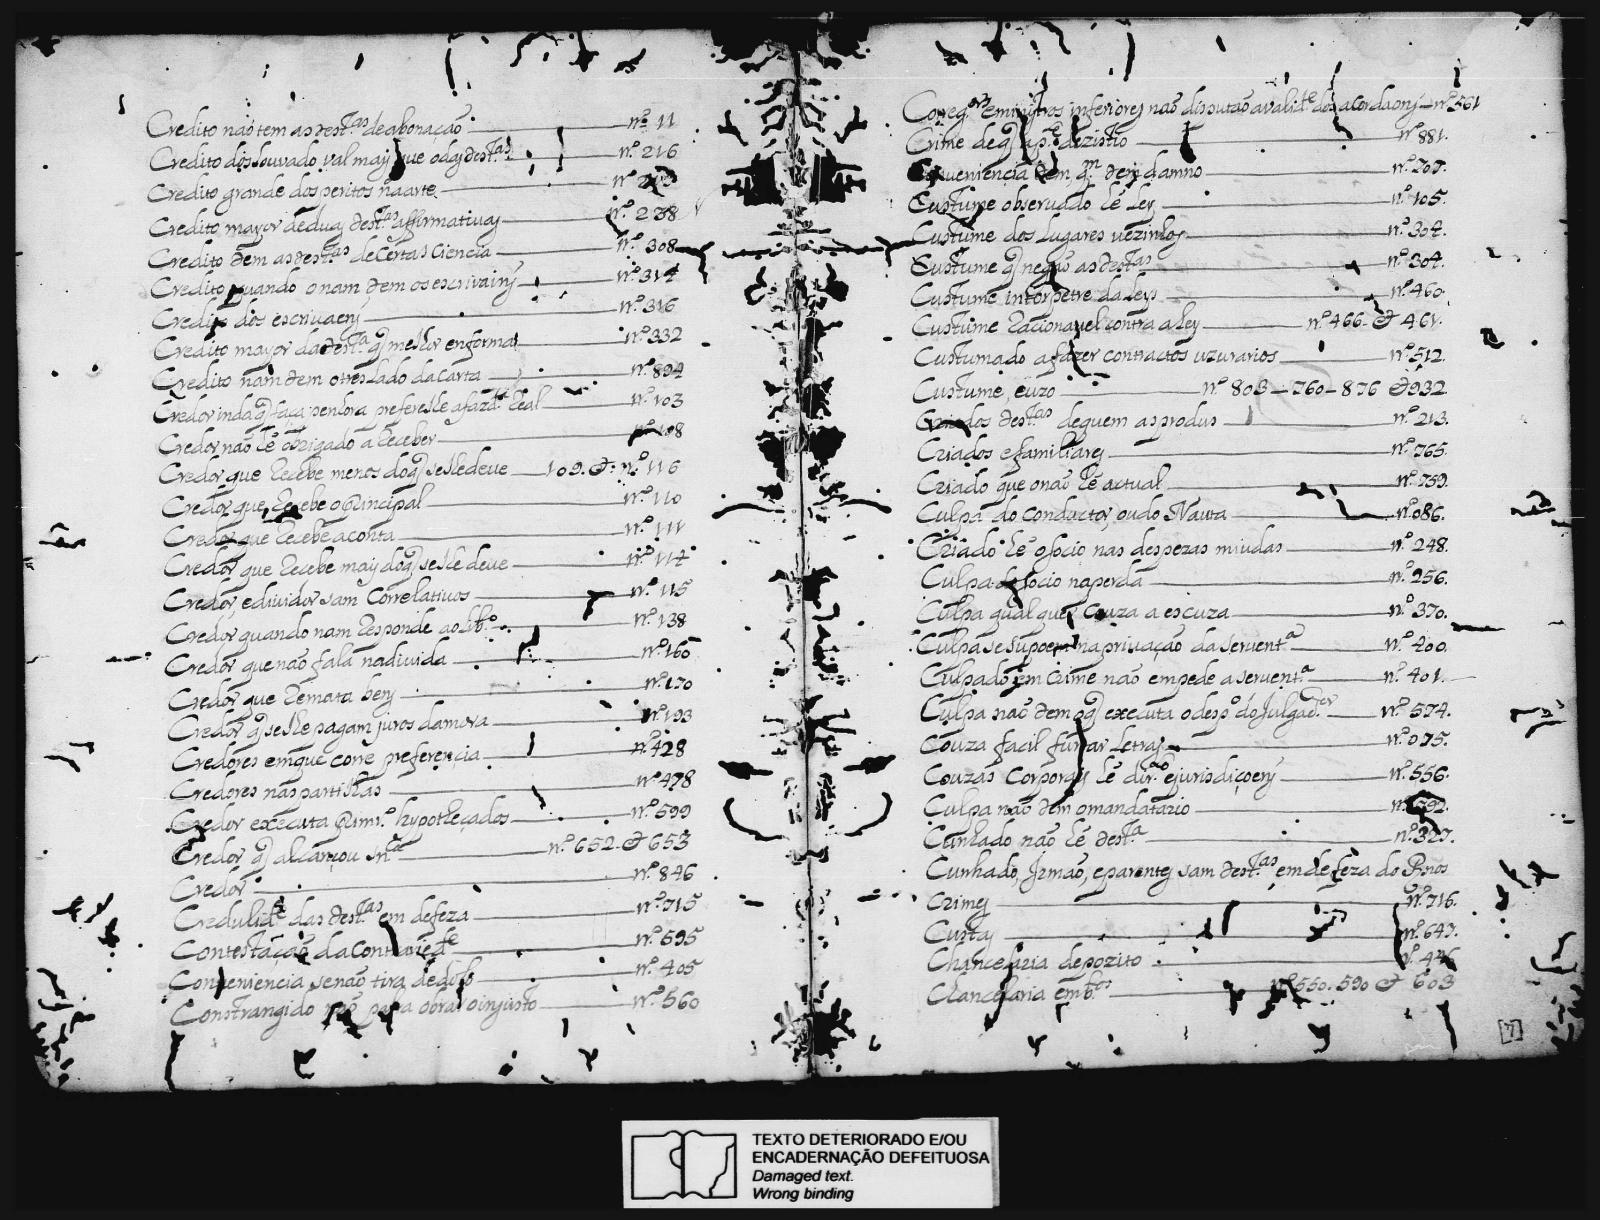 Credito não tem as test.as de abonação nº 11
Credito do louvado val mais que o das test.as nº 216
Credito grande dos peritos na arte nº
Credito mayor de duas test.as affirmativas nº 238
Credito tem as test.as de Certas Ciencia nº 308
Credito quando o nam tem os escrivains nº 314
Credito dos escrivaens nº 316
Credito mayor da test.a q̃ melhor enforma nº 332
Credito nam tem o treslado da carta nº 894
Credor inda q̃ faça penhora preferesse a fazd.a Real nº 103
Credor não hé obrigado a receber nº 108
Credor que recebe menos do q̃ se lhe deve 109. & nº 116
Credor que recebe o principal nº 110
Credor que recebe aconta nº 111
Credor que recebe mays do q̃ se lhe deve nº 114
Credor, e dividor sam Correlativos nº 115
Credor quando nam responde ao lib.º nº 138
Credor que não fala na divida nº 160
Credor que remata bens nº 170
Credor q̃ se lhe pagam juros da mora nº 193
Credores em que corre preferencia nº 428
Credores nas partilhas nº 478
Credor executa prim.º hypothecados nº 599
Credor q̃ alcançou sn.ça nº 652. & 653
Credor nº 846
Credulid.e das test.as em defeza nº 715
Contestação da Contraried.e nº 595
Conveniencia se não tira de dolo nº 405
Constrangido não para obrar o injusto nº 560
Correg.ores e ministros inferiores não disputão a valid.e dos acordaons nº 561
Crime de q̃ a p.te dezistio nº 881.
Conveniencia tem, q.m tem damno nº 707.
Custume observado hé Ley nº 105.
Custume dos lugares vezinhos nº 304.
Custume q̃ negão as test.as nº 304.
Custume interpetre da Leys nº 460.
Custume racionavel contra a Ley nº 466. & 461.
Custumado a fazer contractos uzurarios nº 512.
Custume, e uzo nº 803 – 760 – 876 & 932
Criados test.as de quem as produs nº 213.
Criados e familiares nº 765.
Criado que o não hé actual nº 759.
Culpa do conductor, ou do Nauta nº 086.
Criado hé o socio nas despezas miudas nº 248.
Culpa do socio na perda nº 256.
Culpa qual quer couza a escuza nº 370.
Culpa se supoem na privação da servent.a nº 400.
Culpado em Crime não empede a servent.a nº 401.
Culpa não tem o q̃ executa o desp.º do Julgad.or nº 574.
Couza facil furtar Letras nº 075.
Couzas Corporais hé dir.to e jurisdiçoens nº 556.
Culpa não tem o mandatario nº 592.
Cunhado não hé test.a nº 327.
Cunhado, Irmão, e parentes sam test.as em defeza do
Crimes nº 716.
Custas nº 647.
Chancelaria depozito nº 446
Chancelaria emb.os nº 550. 590 & 603
[7]
TEXTO DETERIORADO E/OU
ENCADERNAÇÃO DEFEITUOSA
Damaged text.
Wrong binding